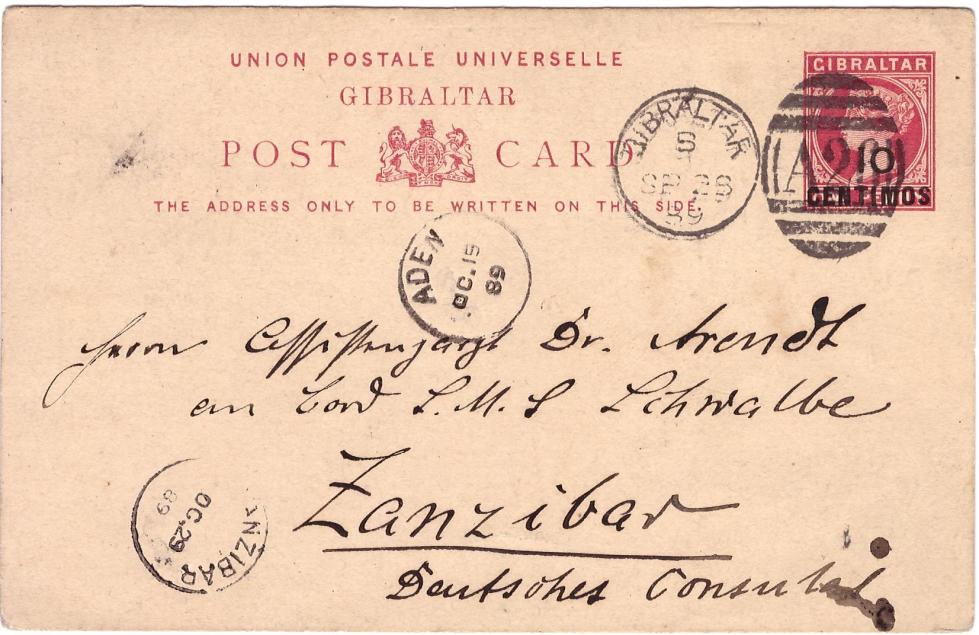 UNION POSTALE UNIVERSELLE
GIBRALTAR
POST CARD
THE ADDRESS ONLY TO BE WRITTEN ON THIS SIDE.
GIBRALTAR
10
CENTIMOS
A26
GIBRALTAR
S
SP 28
89
ADEN
OC.15
89
Herrn Assistenzarzt Dr. Arendt
an Bord S.M.S Schwalbe
Zanzibar
Deutsches Consulat
ANZIBAR
OC.29
89